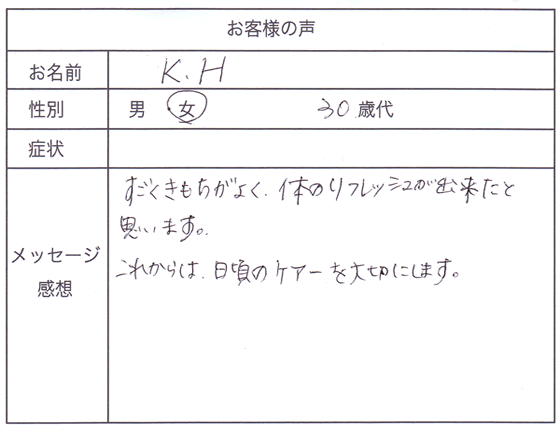 お客様の声
お名前 K.H
性別 男 女 30歳代
症状
メッセージ
感想
すごくきもちがよく、体のリフレッシュが出来たと
思います。
これからは、日頃のケアーを大切にします。